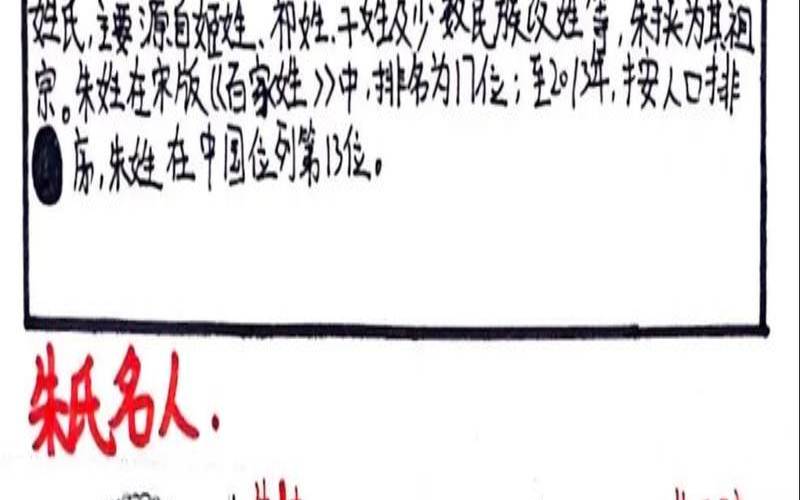 姓氏,主要源自姬姓、祁姓、子姓及少数民族改姓等,朱挟为其祖
宗。朱姓在宋版《百家姓》中,排名为17位;至2013年,按人口排
序,朱姓在中国位列第13位。
朱氏名人.